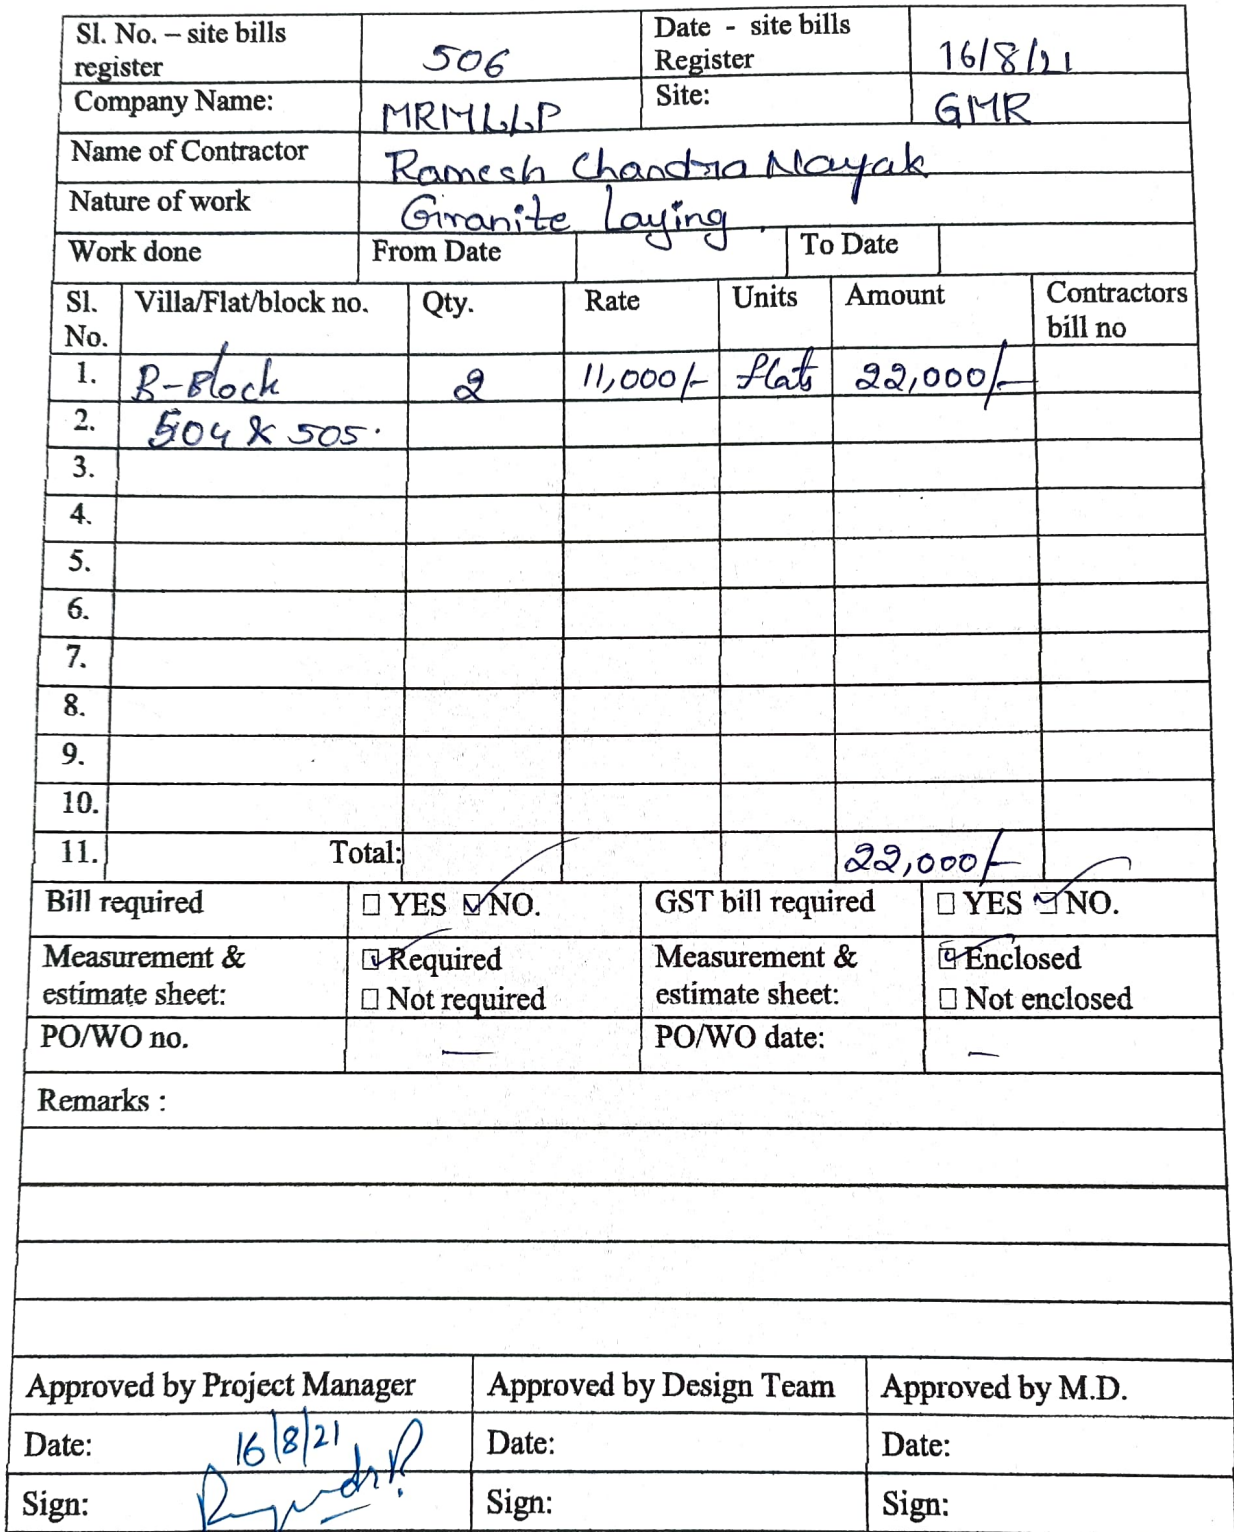 Sl. No. – site bills register 506 Date - site bills Register 16/8/21
Company Name: MRMLLP Site: GMR
Name of Contractor Ramesh Chandra Nayak
Nature of work Granite Laying.
Work done From Date To Date
Sl. No. Villa/Flat/block no. Qty. Rate Units Amount Contractors bill no
1. B-Block 2 11,000/- flats 22,000/-
2. 504 & 505.
3.
4.
5.
6.
7.
8.
9.
10.
11. Total: 22,000/-
Bill required ☐ YES ☑ NO. GST bill required ☐ YES ☑ NO.
Measurement & estimate sheet: ☑ Required ☐ Not required Measurement & estimate sheet: ☑ Enclosed ☐ Not enclosed
PO/WO no. — PO/WO date: —
Remarks :
Approved by Project Manager Approved by Design Team Approved by M.D.
Date: 16/8/21 Date: Date:
Sign: Sign: Sign: